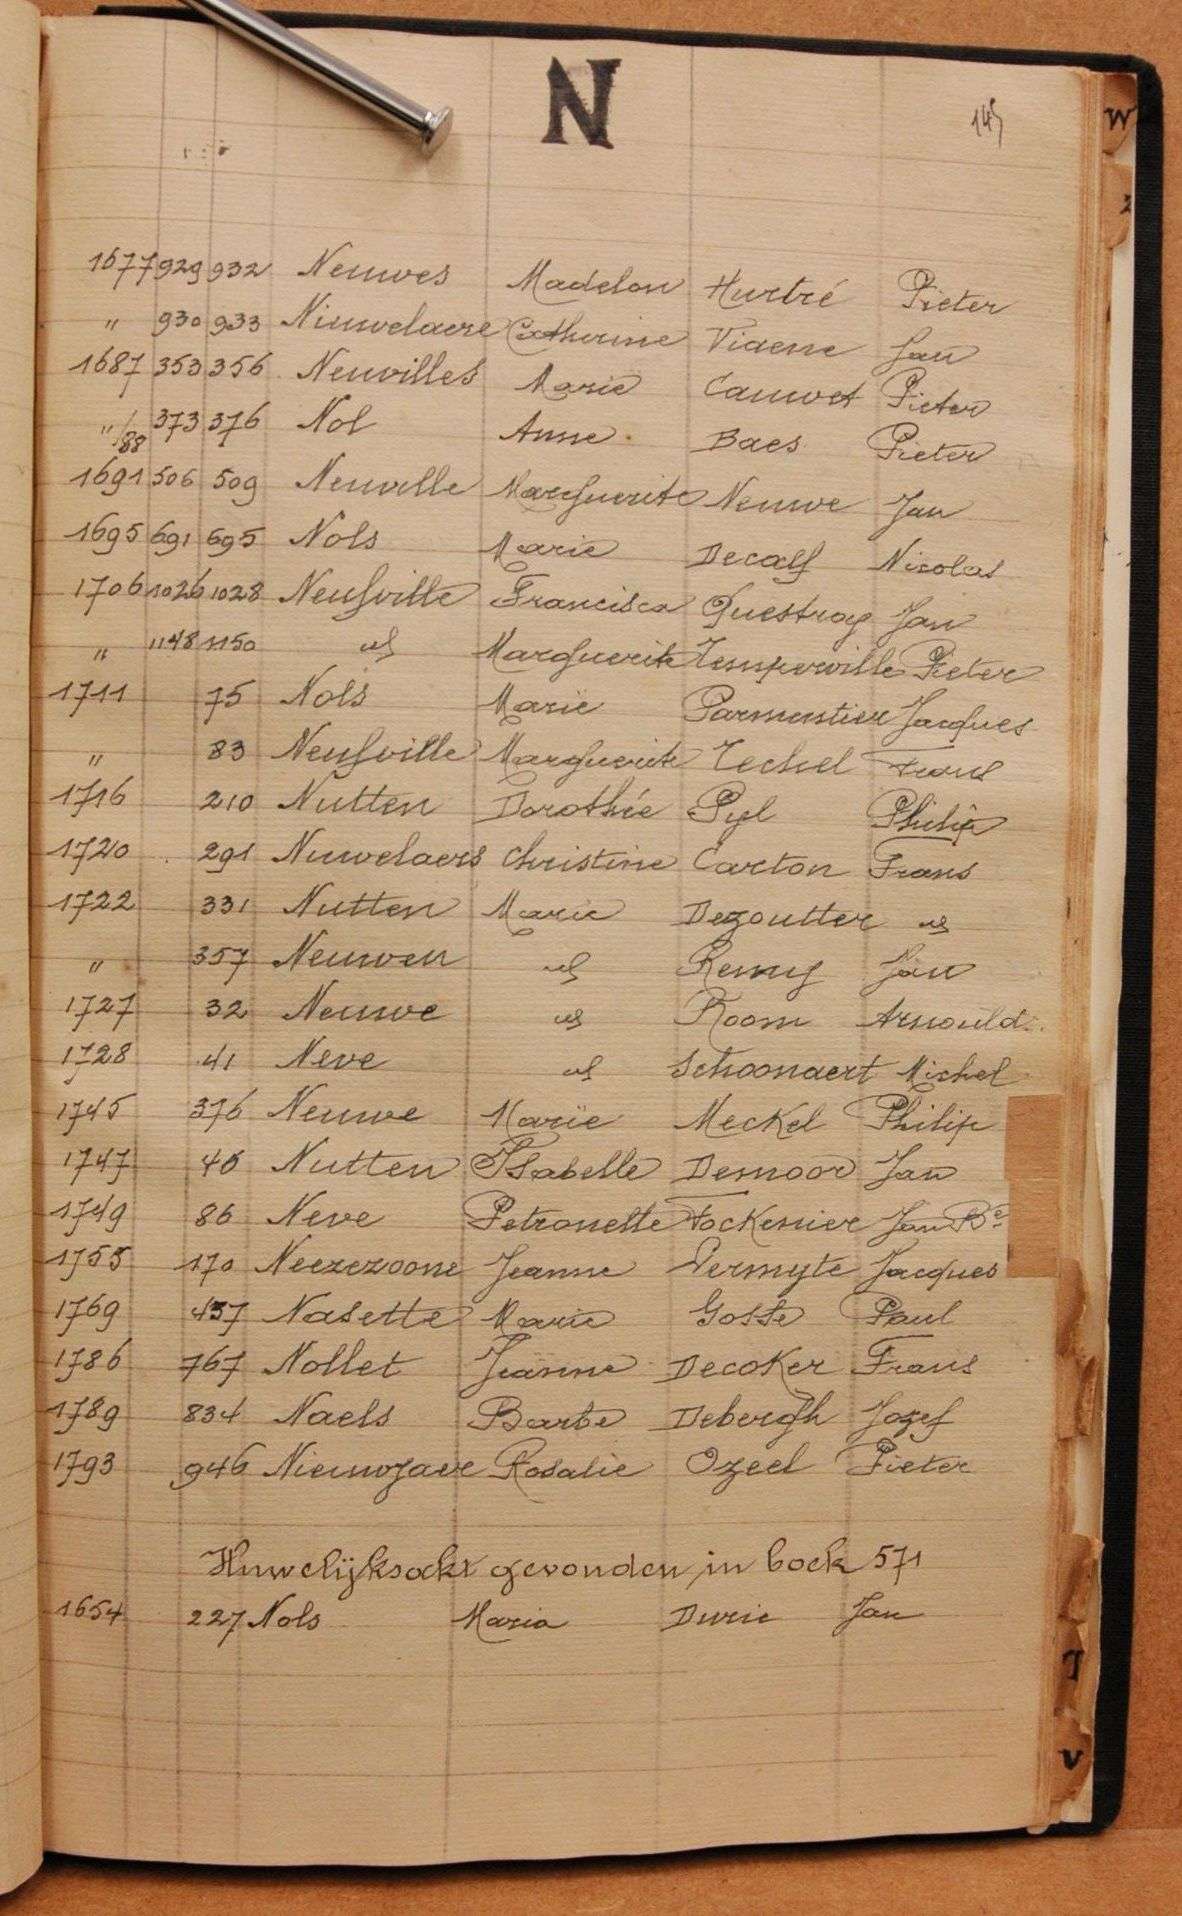 N
145
W
Z
1677 929 932 Neuwes Madelon Hurtré Pieter
" 930 933 Niuwelaere Catherine Viaene Jan
1687 353 356 Neuvilles Marie Cauwet Pieter
"/88 373 376 Nol Anne Baes Pieter
1691 506 509 Neuville Marguerite Neuwe Jan
1695 691 695 Nols Marie Decalf Nicolas
1706 1026 1028 Neufville Francisca Questroy Jan
" 1148 1150 id Marguerite Temperville Pieter
1711 75 Nols Marie Parmentier Jacques
" 83 Neufville Marguerite Techel Frans
1716 210 Nutten Dorothée Pyl Philip
1720 291 Nuwelaers Christine Carton Frans
1722 331 Nutten Marie Dezoutter id
" 357 Neuwen id Remy Jan
1727 32 Neuwe id Room Arnould
1728 41 Neve id Schoonaert Michel
1745 376 Neuwe Marie Meckel Philip
1747 46 Nutten Isabelle Demoor Jan
1749 86 Neve Petronelle Fockenier Jan Bte
1755 170 Neezezoone Jeanne Vermyte Jacques
1769 437 Nasette Marie Gosse Paul
1786 767 Nollet Jeanne Decoker Frans
1789 834 Naels Barbe Debergh Jozef
1793 946 Nieuwjaer Rosalie Ozeel Pieter
Huwelijksakt gevonden in boek 571
1654 227 Nols Maria Durie Jan
V